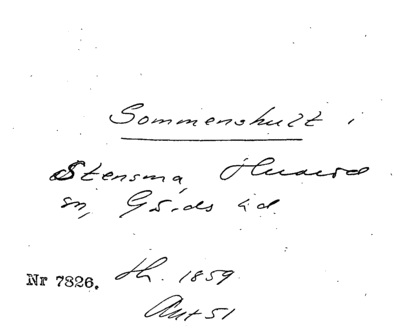 Sommenshult i
Stensma, Huared
sn, Gös.ds äd.
Nr 7826. th. 1859
Ant 51